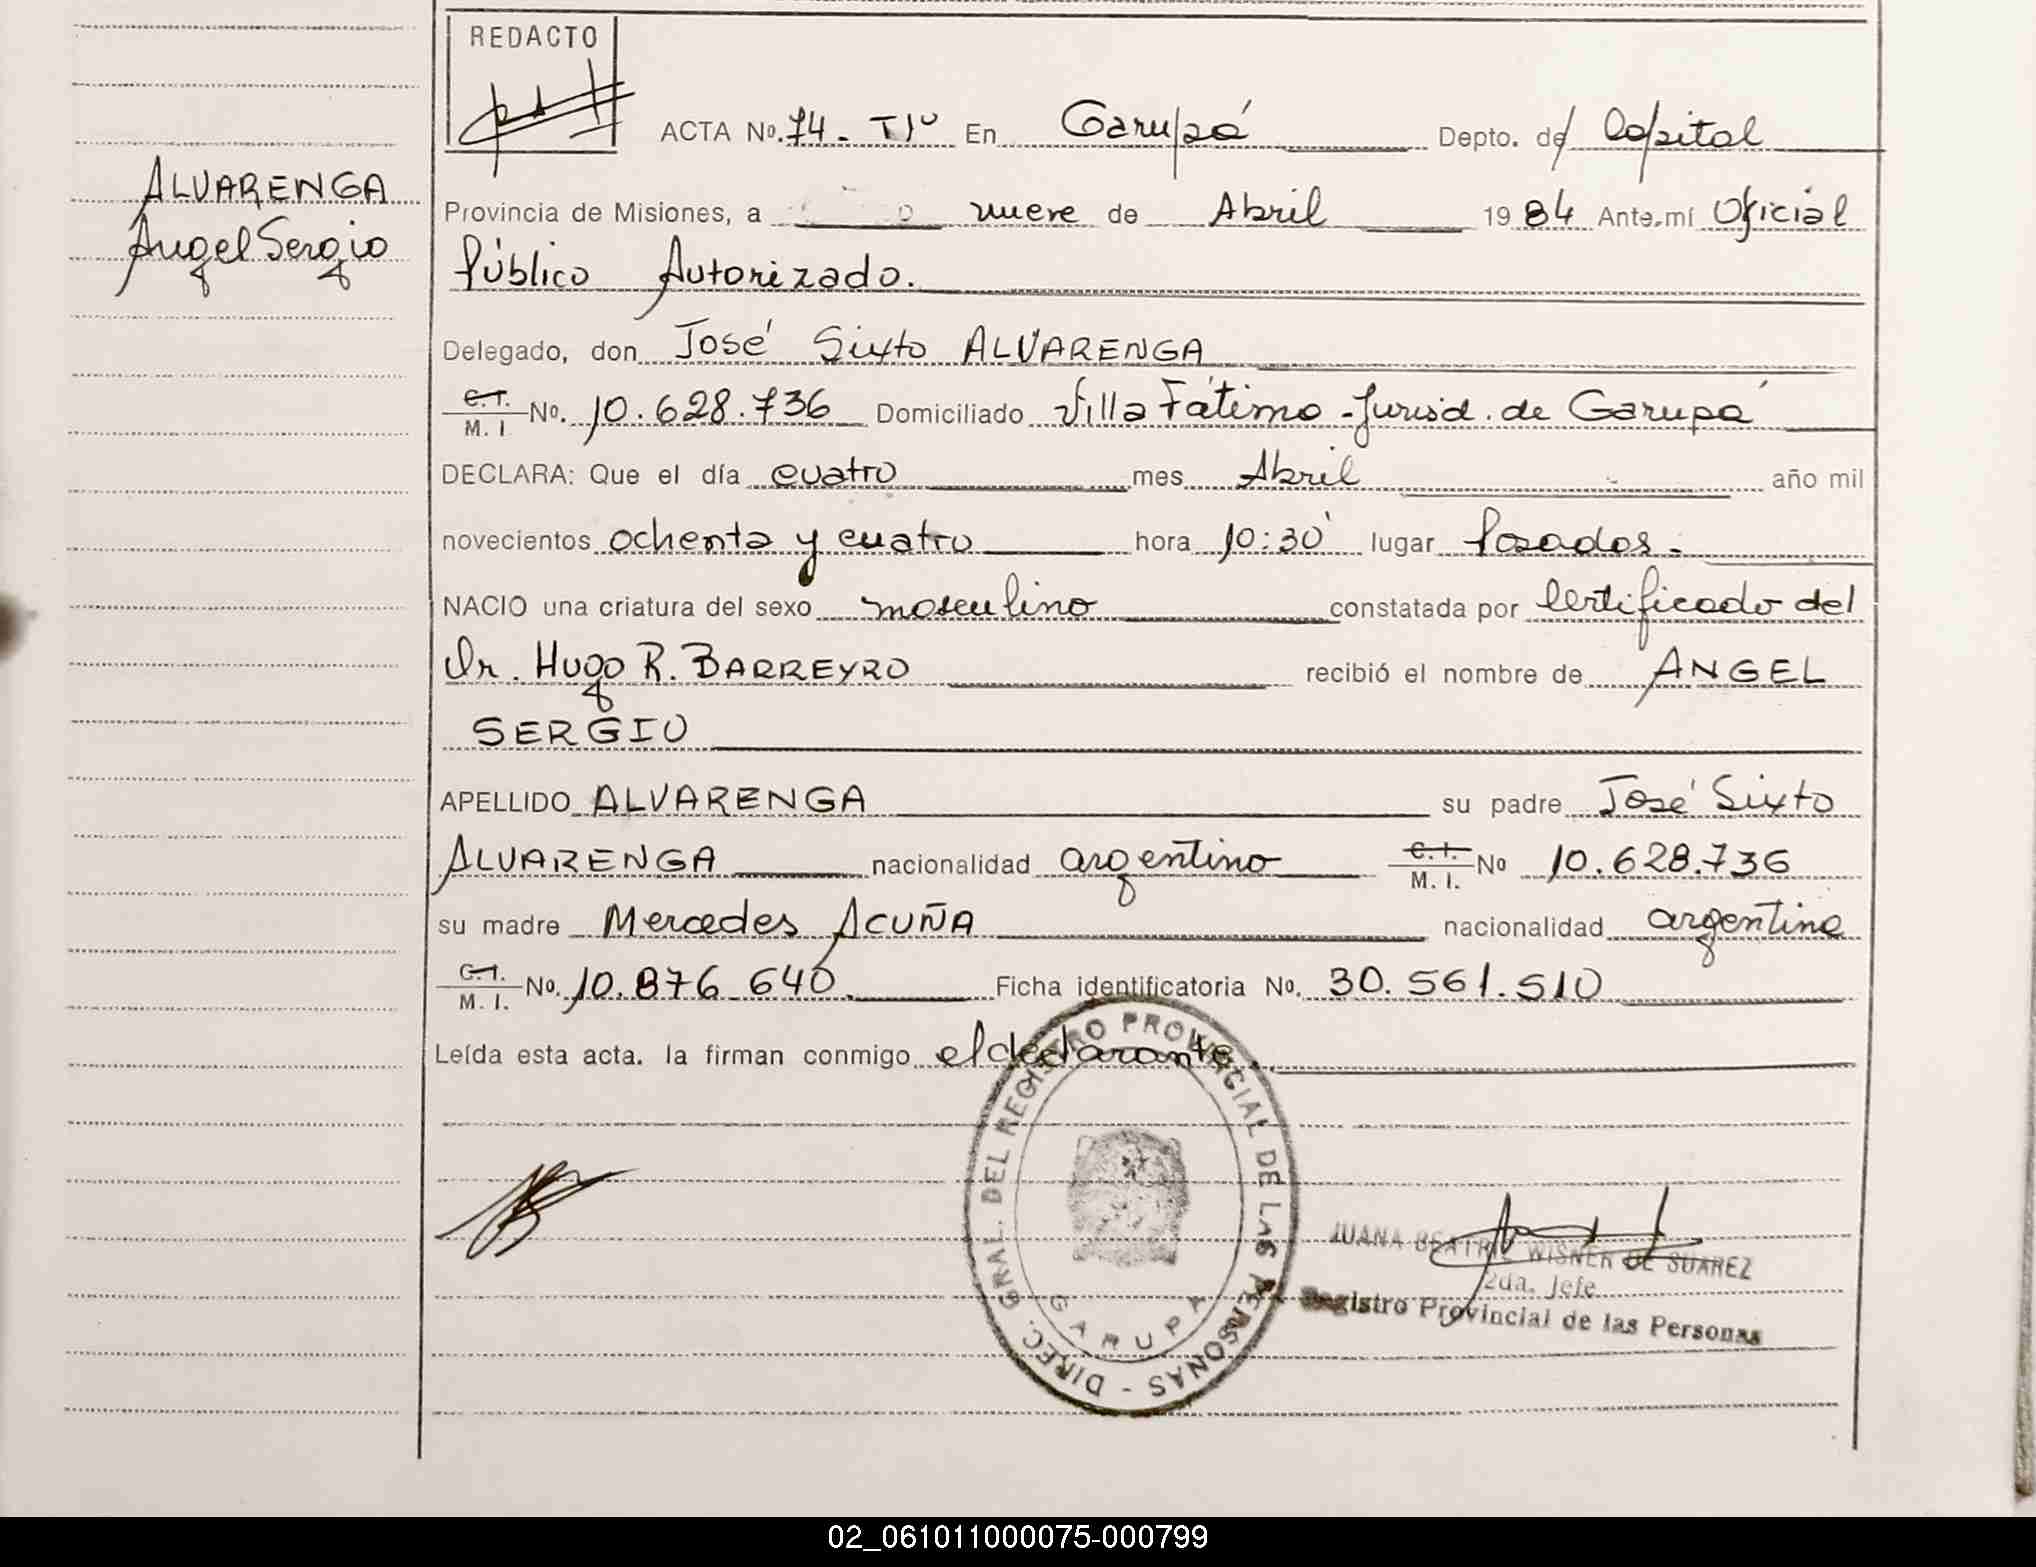 REDACTO
ACTA No. 74 - Tº 1º En Garupá Depto. de Capital
ALVARENGA
Angel Sergio
Provincia de Misiones, a nueve de Abril 1984 Ante mí Oficial
Público Autorizado.
Delegado, don José Sixto ALVARENGA
C.I. M. I No. 10.628.736 Domiciliado Villa Fátima - Jurisd. de Garupá
DECLARA: Que el día cuatro mes Abril año mil
novecientos ochenta y cuatro hora 10:30' lugar Posadas.
NACIO una criatura del sexo masculino constatada por Certificado del
Dr. Hugo R. BARREYRO recibió el nombre de ANGEL
SERGIO
APELLIDO ALVARENGA su padre José Sixto
ALVARENGA nacionalidad argentino C.I. M. I. No 10.628.736
su madre Mercedes ACUÑA nacionalidad argentina
C.I. M. I. No. 10.876.640. Ficha identificatoria No. 30.561.510
Leída esta acta. la firman conmigo el declarante.
DIREC. GRAL. DEL REGISTRO PROVINCIAL DE LAS PERSONAS -
GARUPA
JUANA BEATRIZ WISNER DE SUAREZ
2da. Jefe
Registro Provincial de las Personas
02_061011000075-000799